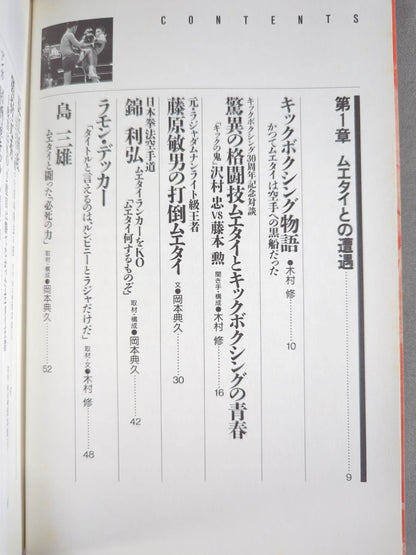 CONTENTS
第1章 ムエタイとの遭遇……9
キックボクシング物語 ●木村 修……10
かつてムエタイは空手への黒船だった
キックボクシング30周年記念対談
驚異の格闘技ムエタイとキックボクシングの青春
「キックの鬼」沢村 忠VS藤本 勲 聞き手・構成●木村 修……16
元・ラジャダムナンライト級王者
藤原敏男の打倒ムエタイ 文●岡本典久……30
日本拳法空手道
錦 利弘 ムエタイランカーをKO
「ムエタイ何するものぞ」 取材・構成●岡本典久……42
ラモン・デッカー
「タイトルと言えるのは、ルンピニーとラジャだけだ」 取材・文●木村 修……48
島 三雄
ムエタイと闘った「必死の力」 取材・構成●岡本典久……52